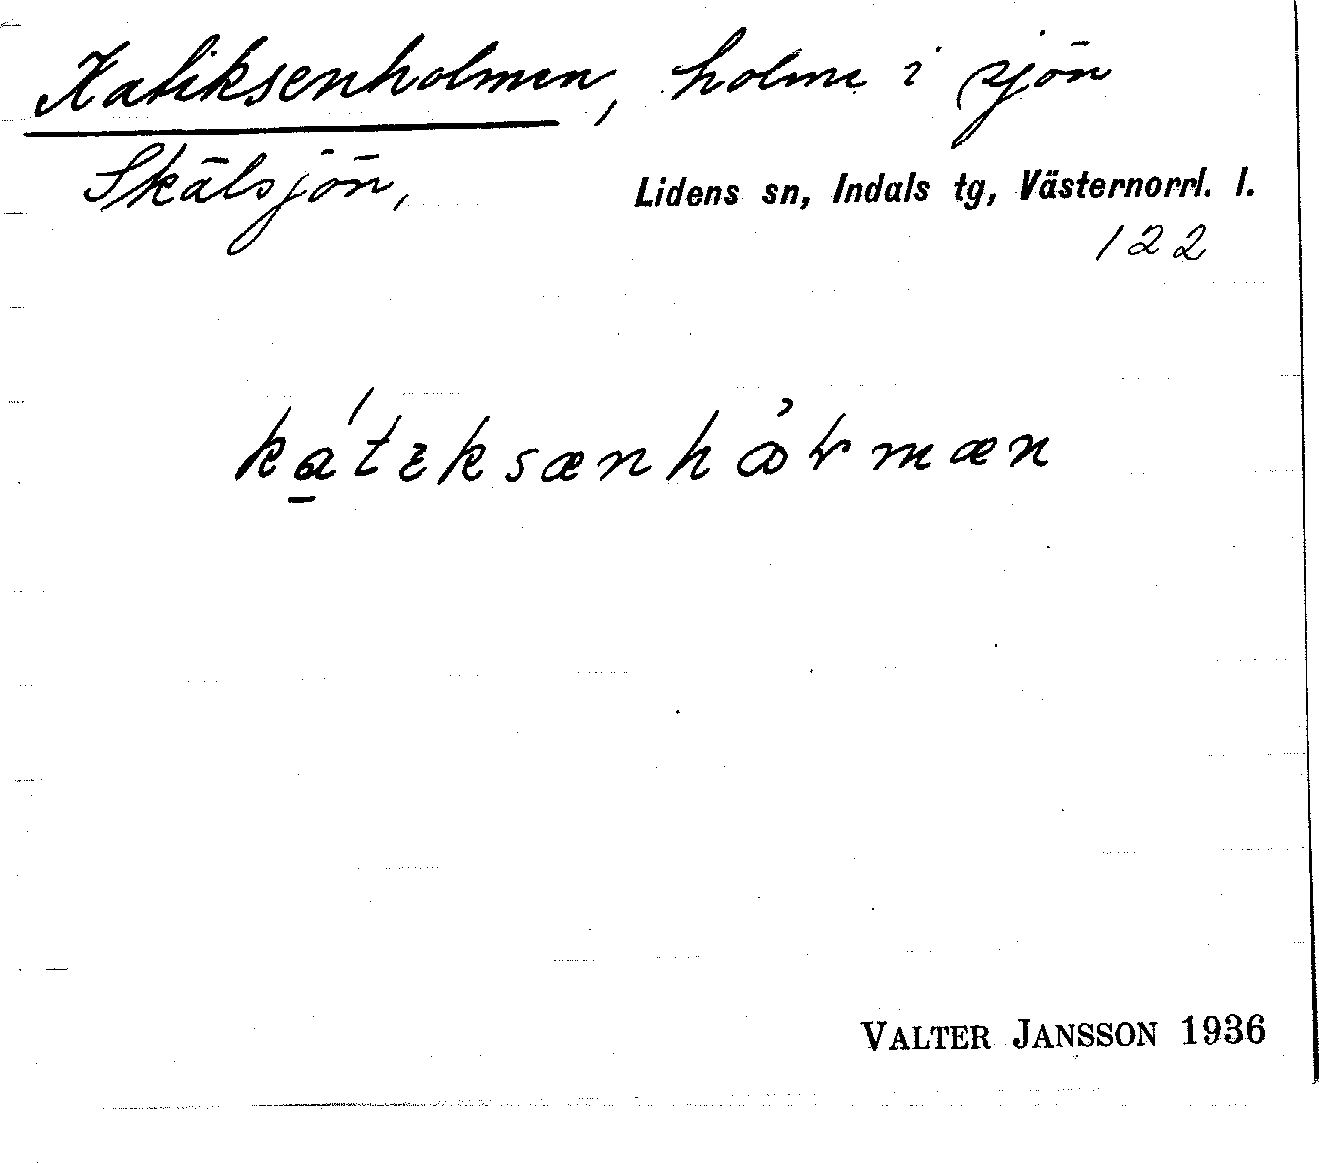 Katiksenholmen, holme i sjön
Skälsjön,
Lidens sn, Indals tg, Västernorrl. l.
122
VALTER JANSSON 1936